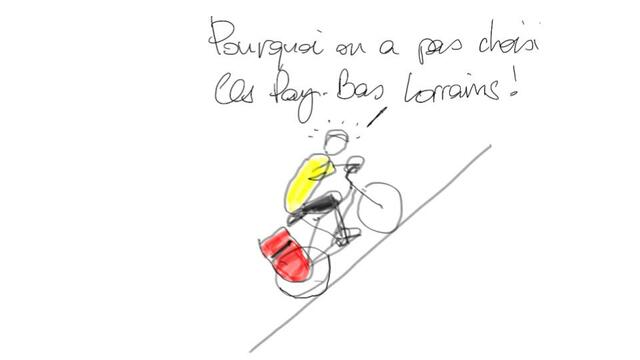 Pourquoi on a pas choisi
les Pay-Bas Lorrains !